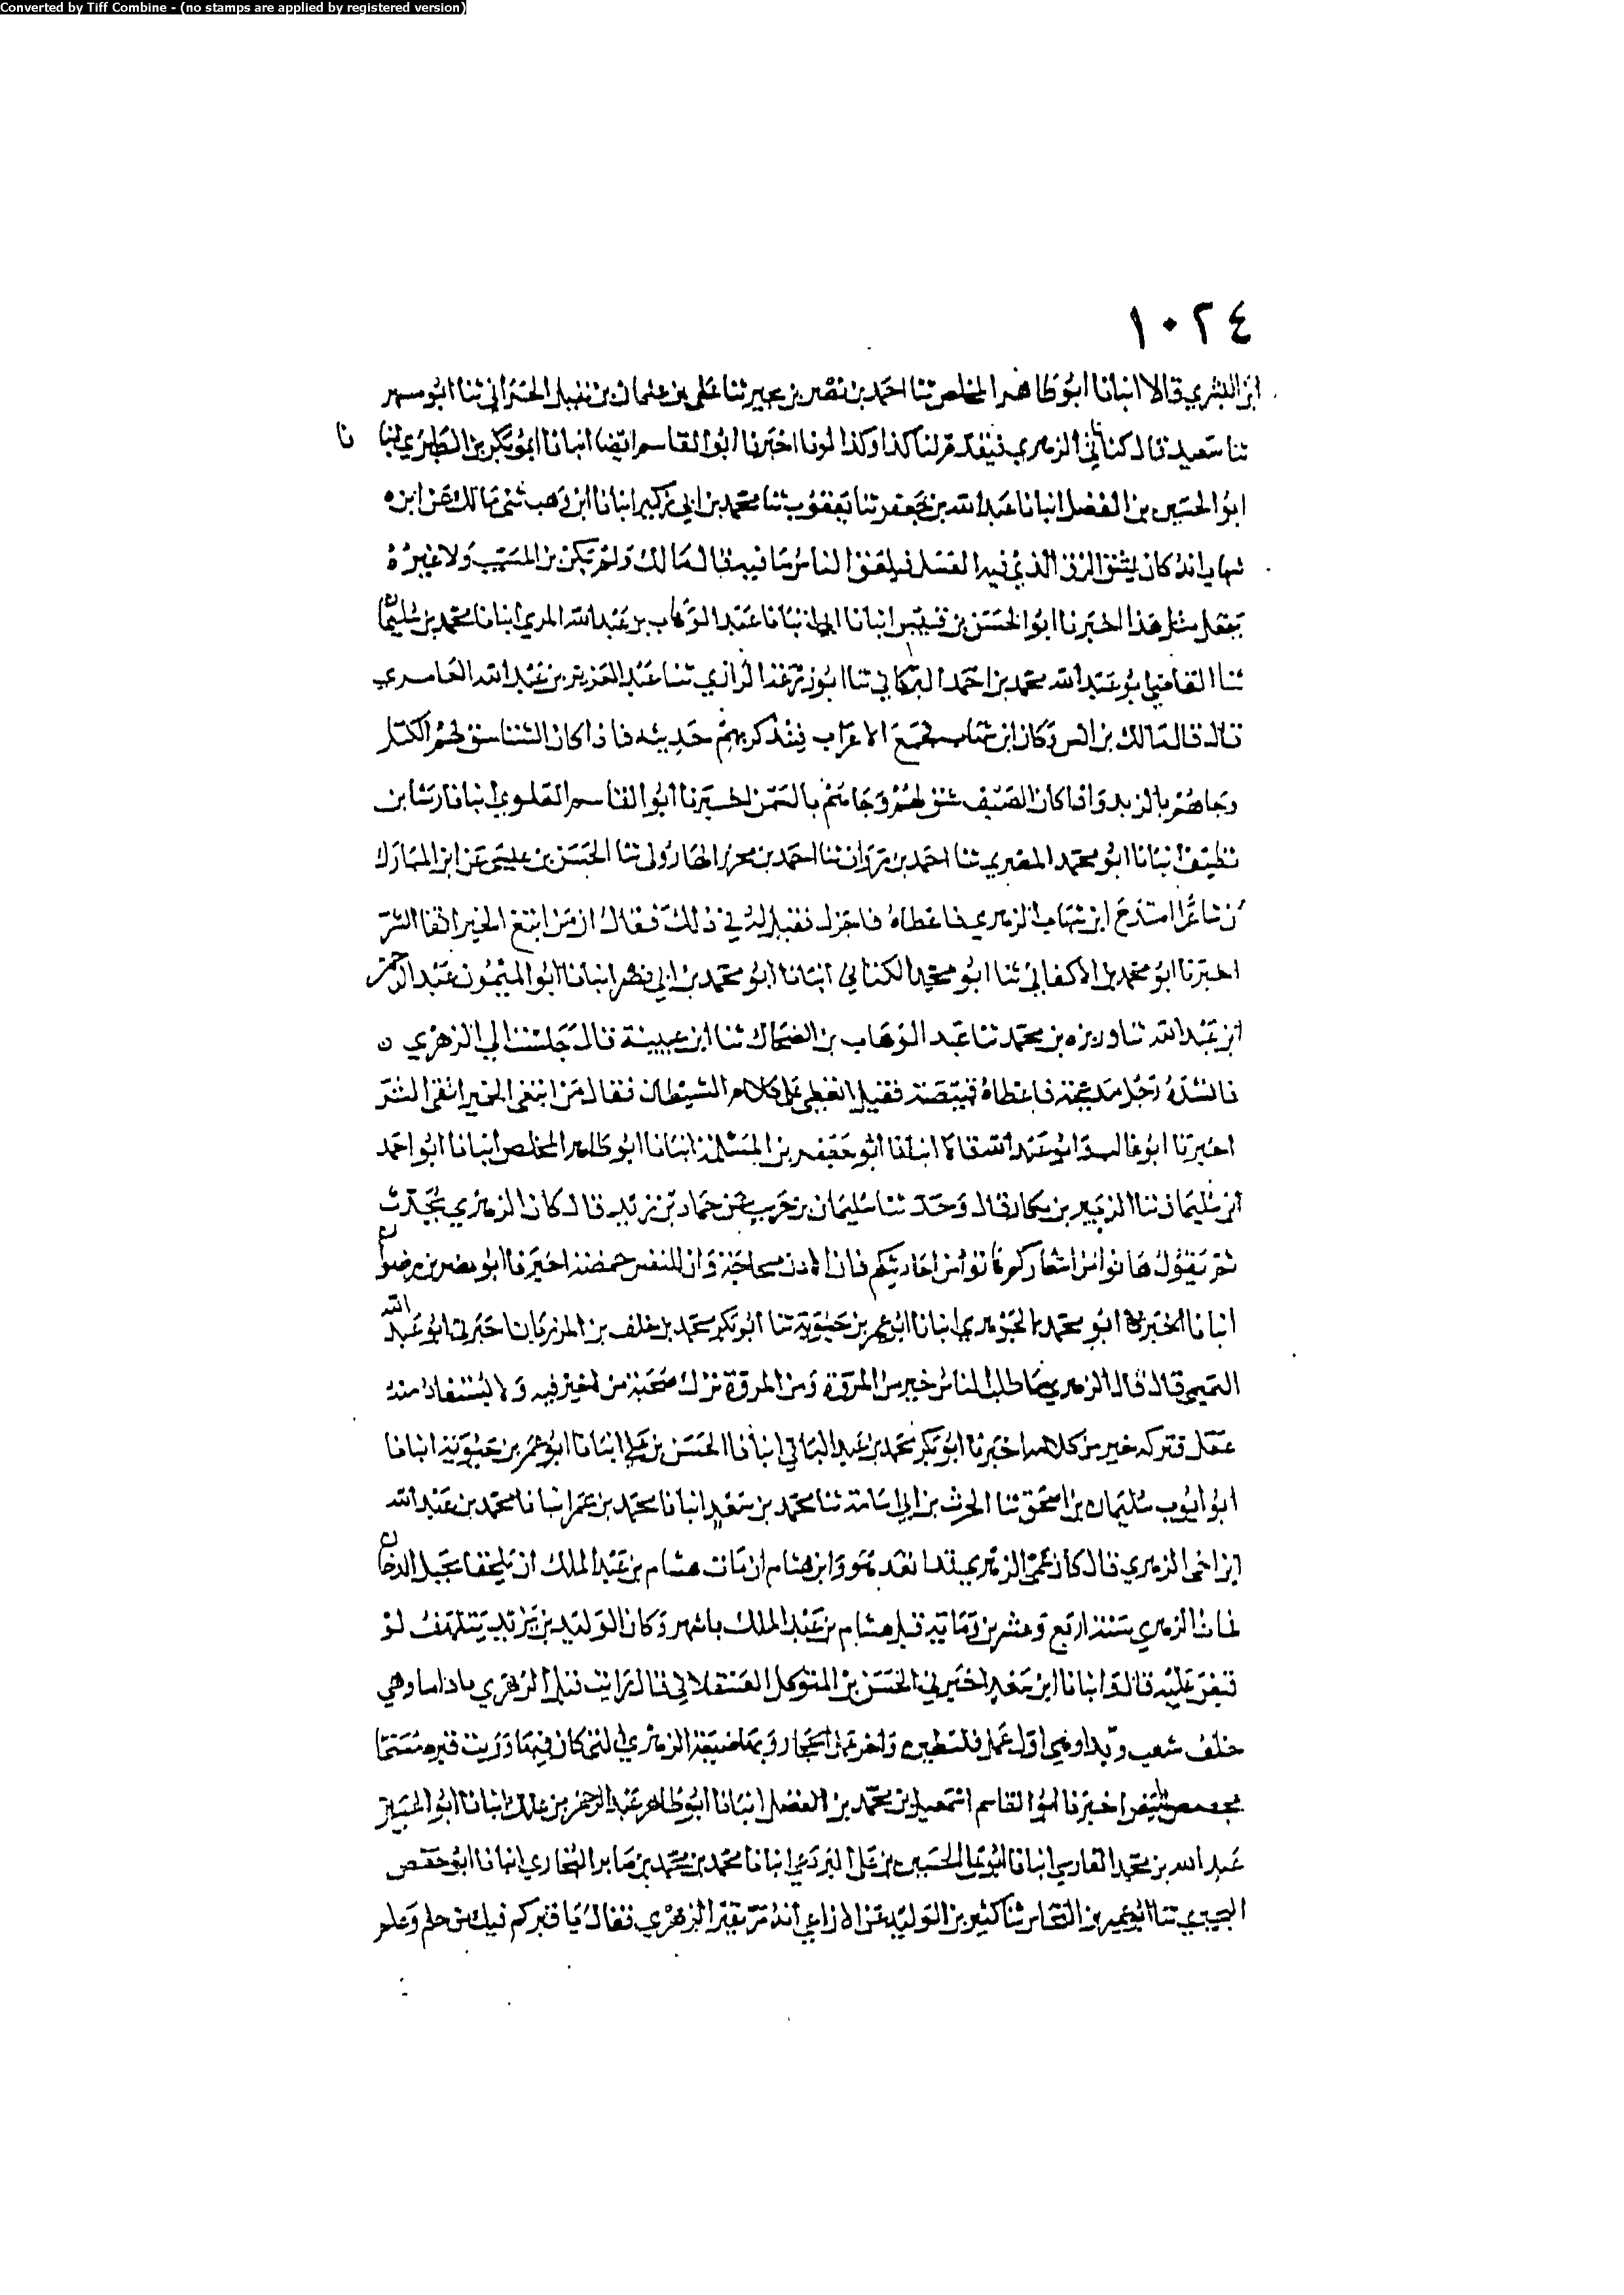 Converted by Tiff Combine - (no stamps are applied by registered version)
١٠٢٤
ابن البشري قالا انبانا ابو طاهر المخلص ثنا احمد بن نصر بن بجير ثنا علي بن عثمان بن نفيل الحراني ثنا ابو مسهر
ثنا سعيد قال كنا ناتي الزهري فيقدم لنا كذا وكذا لونا اخبرنا ابو القاسم ايضا انبانا ابو بكر بن الطبري انبا نا
ابو الحسين بن الفضل انبانا عبد الله بن جعفر ثنا يعقوب ثنا محمد بن ابي زكير انبانا ابن وهب ثني مالك عن ابن
شهاب انه كان يشق الزق الذي فيه العسل فيلعق الناس ما فيه قال مالك ولم يكن بن المسيب ولا غيره
يفعل مثل هذا اخبرنا ابو الحسن بن قبيس انبانا ابي انبانا عبد الوهاب بن عبد الله المري انبانا محمد بن سليمان
ثنا القاضي ابو عبد الله محمد بن احمد ثنا ابو زرعة الرازي ثنا عبد العزيز بن عبد الله العامري
قال قال مالك بن انس وكان ابن شهاب يجمع الاعراب فيذكر بهم حديثه فاذا كان الشتا شق لهم العسل
وجاهم بالزبد واذا كان الصيف شق لهم وجاهم بالسمن اخبرنا ابو القاسم العلوي انبانا رشا بن
نظيف انبانا ابو محمد المصري ثنا احمد بن مروان ثنا احمد بن محرز الهاروني ثنا الحسن بن عيسى عن ابن المبارك
ان شاعرا امتدح ابن شهاب الزهري فاعطاه فاجزل فقيل له في ذلك فقال ان من ابتغ الخير اتقا الشر
اخبرنا ابو محمد بن الاكفاني ثنا ابو محمد الكتاني انبانا ابو محمد بن ابي نصر انبانا ابو الميمون عبد الرحمن
ابن عبد الله ثنا وريزه بن محمد ثنا عبد الوهاب بن الضحاك ثنا ابن عيينة قال جلست الي الزهري
فانشده رجل مديحة فاعطاه قميصه فقيل اتعطي على كلام الشيطان فقال من ابتغى الخير اتقى الشر
اخبرنا ابو غالب وابو عبد الله قالا انبانا ابو جعفر بن المسلمة انبانا ابو طاهر المخلص انبانا ابو احمد
ابن سليمان ثنا الزبير بن بكار قال وحدثنا سليمان بن حرب عن حماد بن زيد قال كان الزهري يحدث
ثم يقول هاتوا من اشعاركم هاتوا من احاديثكم فان الاذن مجاجة وان للنفس حمضة اخبرنا ابو نصر بن رضوان
انبانا ابو محمد الجوهري انبانا ابو عمر بن حيوية ثنا ابو بكر محمد بن خلف بن المرزبان اخبرني ابو عبد الله
التميمي قال قال الزهري ما طلب الناس خير من المروة ومن المروة ترك صحبة من لا خير فيه ولا يستفاد منه
عقل فتركه خير من كلامه اخبرنا ابو بكر محمد بن عبد الباقي انبانا الحسن بن علي انبانا ابو عمر بن حيوية انبانا
ابو ايوب سليمان بن اسحق ثنا الحرث بن ابي اسامة ثنا محمد بن سعد انبانا محمد بن عمر انبانا محمد بن عبد الله
ابن اخي الزهري قال كان عمي الزهري قد اتعد هو وابن هشام ان مات هشام بن عبد الملك ان يلحقا بجبل الدخان
فمات الزهري سنة اربع وعشرين ومايه قبل هشام بن عبد الملك باشهر وكان الوليد بن يزيد يتلهف لو
قبض عليه قال وانبانا ابن سعد اخبرني الحسن بن المتوكل العسقلاني قال رايت قبر الزهري باداما وهي
خلف شغب وبدا وهي اول عمل فلسطين واخر عمل الحجاز وبها ضيعة الزهري التي كان فيها ورايت قبره مسنما
مجصص ابيض اخبرنا ابو القاسم اسمعيل بن محمد بن الفضل انبانا ابو طاهر عبد الرحمن بن علك انبانا ابو الحسين
عبد الله بن محمد الفارسي انبانا ابو علي الحسين بن علي البردعي انبانا محمد بن محمد بن صابر البخاري انبانا ابو حفص
البجيري ثنا ابو عمير بن النحاس ثنا كثير بن الوليد عن الاوزاعي انه مر بقبر الزهري فقال يا قبر كم فيك من حلم وعلم